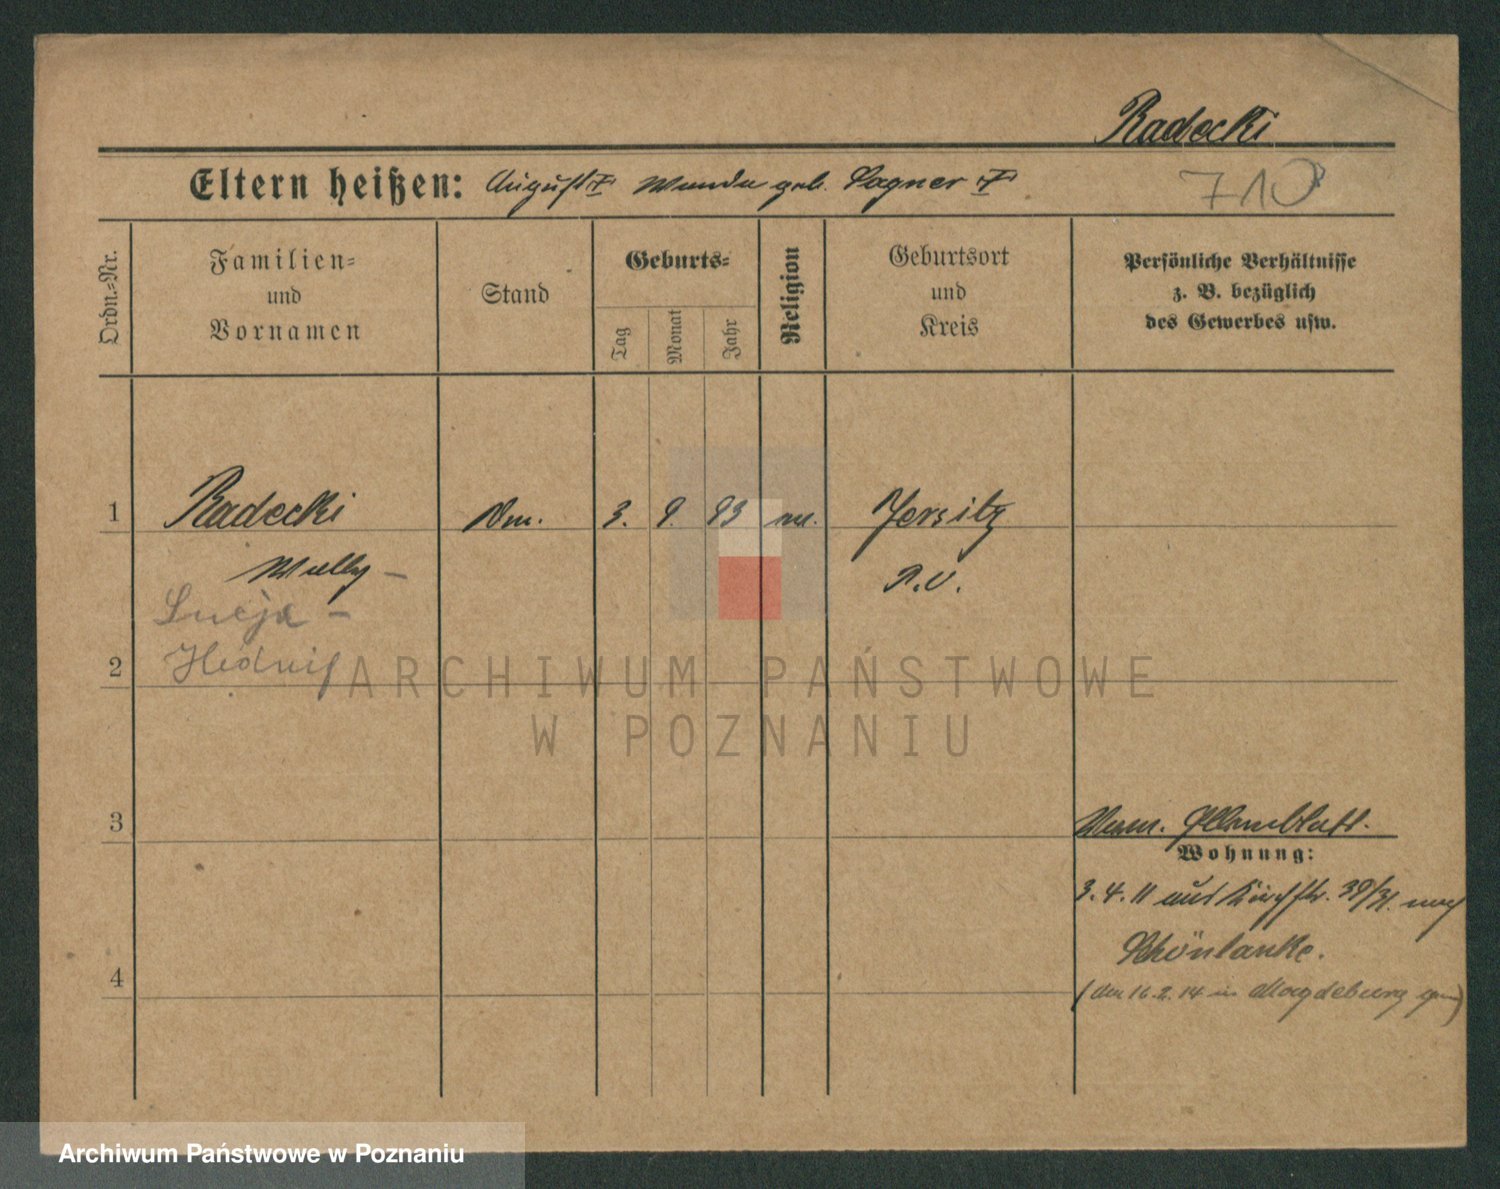 Radecki
Eltern heißen: August † Wanda geb. Wagner †
710
Ordn.-Nr.
Familien-
und
Vornamen
Stand
Geburts-
Tag
Monat
Jahr
Religion
Geburtsort
und
Kreis
Persönliche Verhältnisse
z. B. bezüglich
des Gewerbes usw.
1
Radecki
3. 9. 93
Jersitz
P.O.
Willy –
Lucja –
2
Hedwig
ARCHIWUM PAŃSTWOWE
W POZNANIU
3
Wohnung:
3.4.11 aus Kirchstr. 30/31. nach
Schönlanke.
4
(den 16.2.14 in Magdeburg gem)
Archiwum Państwowe w Poznaniu